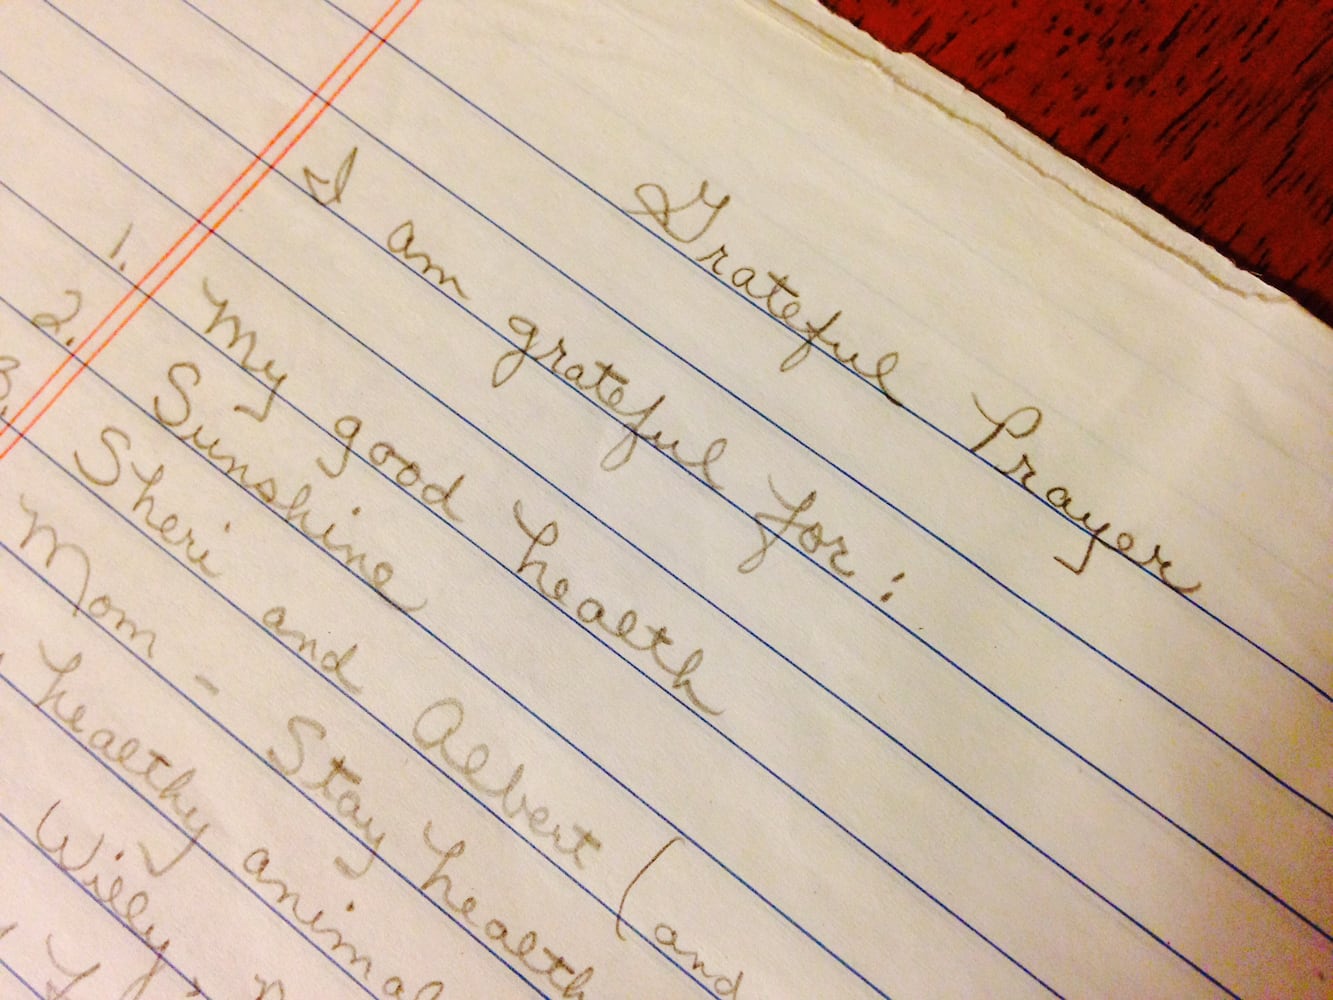 Grateful Prayer
I am grateful for:
1. My good health
2. Sunshine
3. Sheri and Albert (and
Mom - Stay health
healthy animal
Willy,